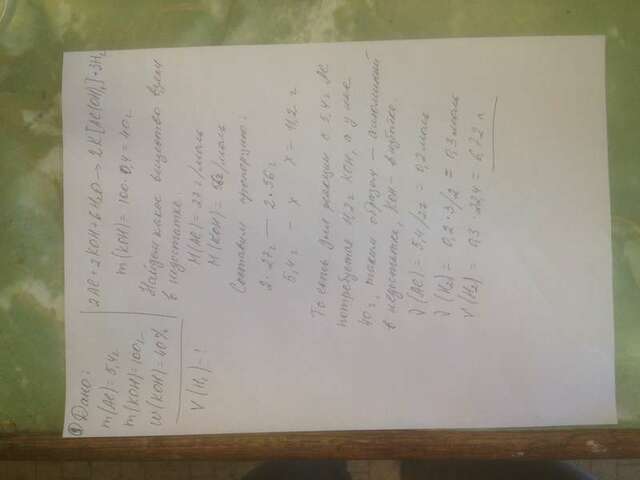 ① Дано:
m(Al) = 5,4г
m(KOH) = 100г
W(KOH) = 40%
V(H₂) - ?
2Al + 2KOH + 6H₂O → 2K[Al(OH)₄] + 3H₂
m(KOH) = 100 · 0,4 = 40г
Найдем какое вещество взяли
в недостатке.
M(Al) = 27 г/моль
M(KOH) = 56г/моль
Составим пропорцию:
2·27г — 2·56г
5,4г - x x = 11,2 г
То есть для реакции с 5,4г Al
потребуется 11,2г KOH, а у нас
40г, таким образом – алюминий
в недостатке, KOH - в избытке.
ν(Al) = 5,4/27 = 0,2 моль
ν(H₂) = 0,2 · 3/2 = 0,3 моль
V(H₂) = 0,3 · 22,4 = 6,72 л